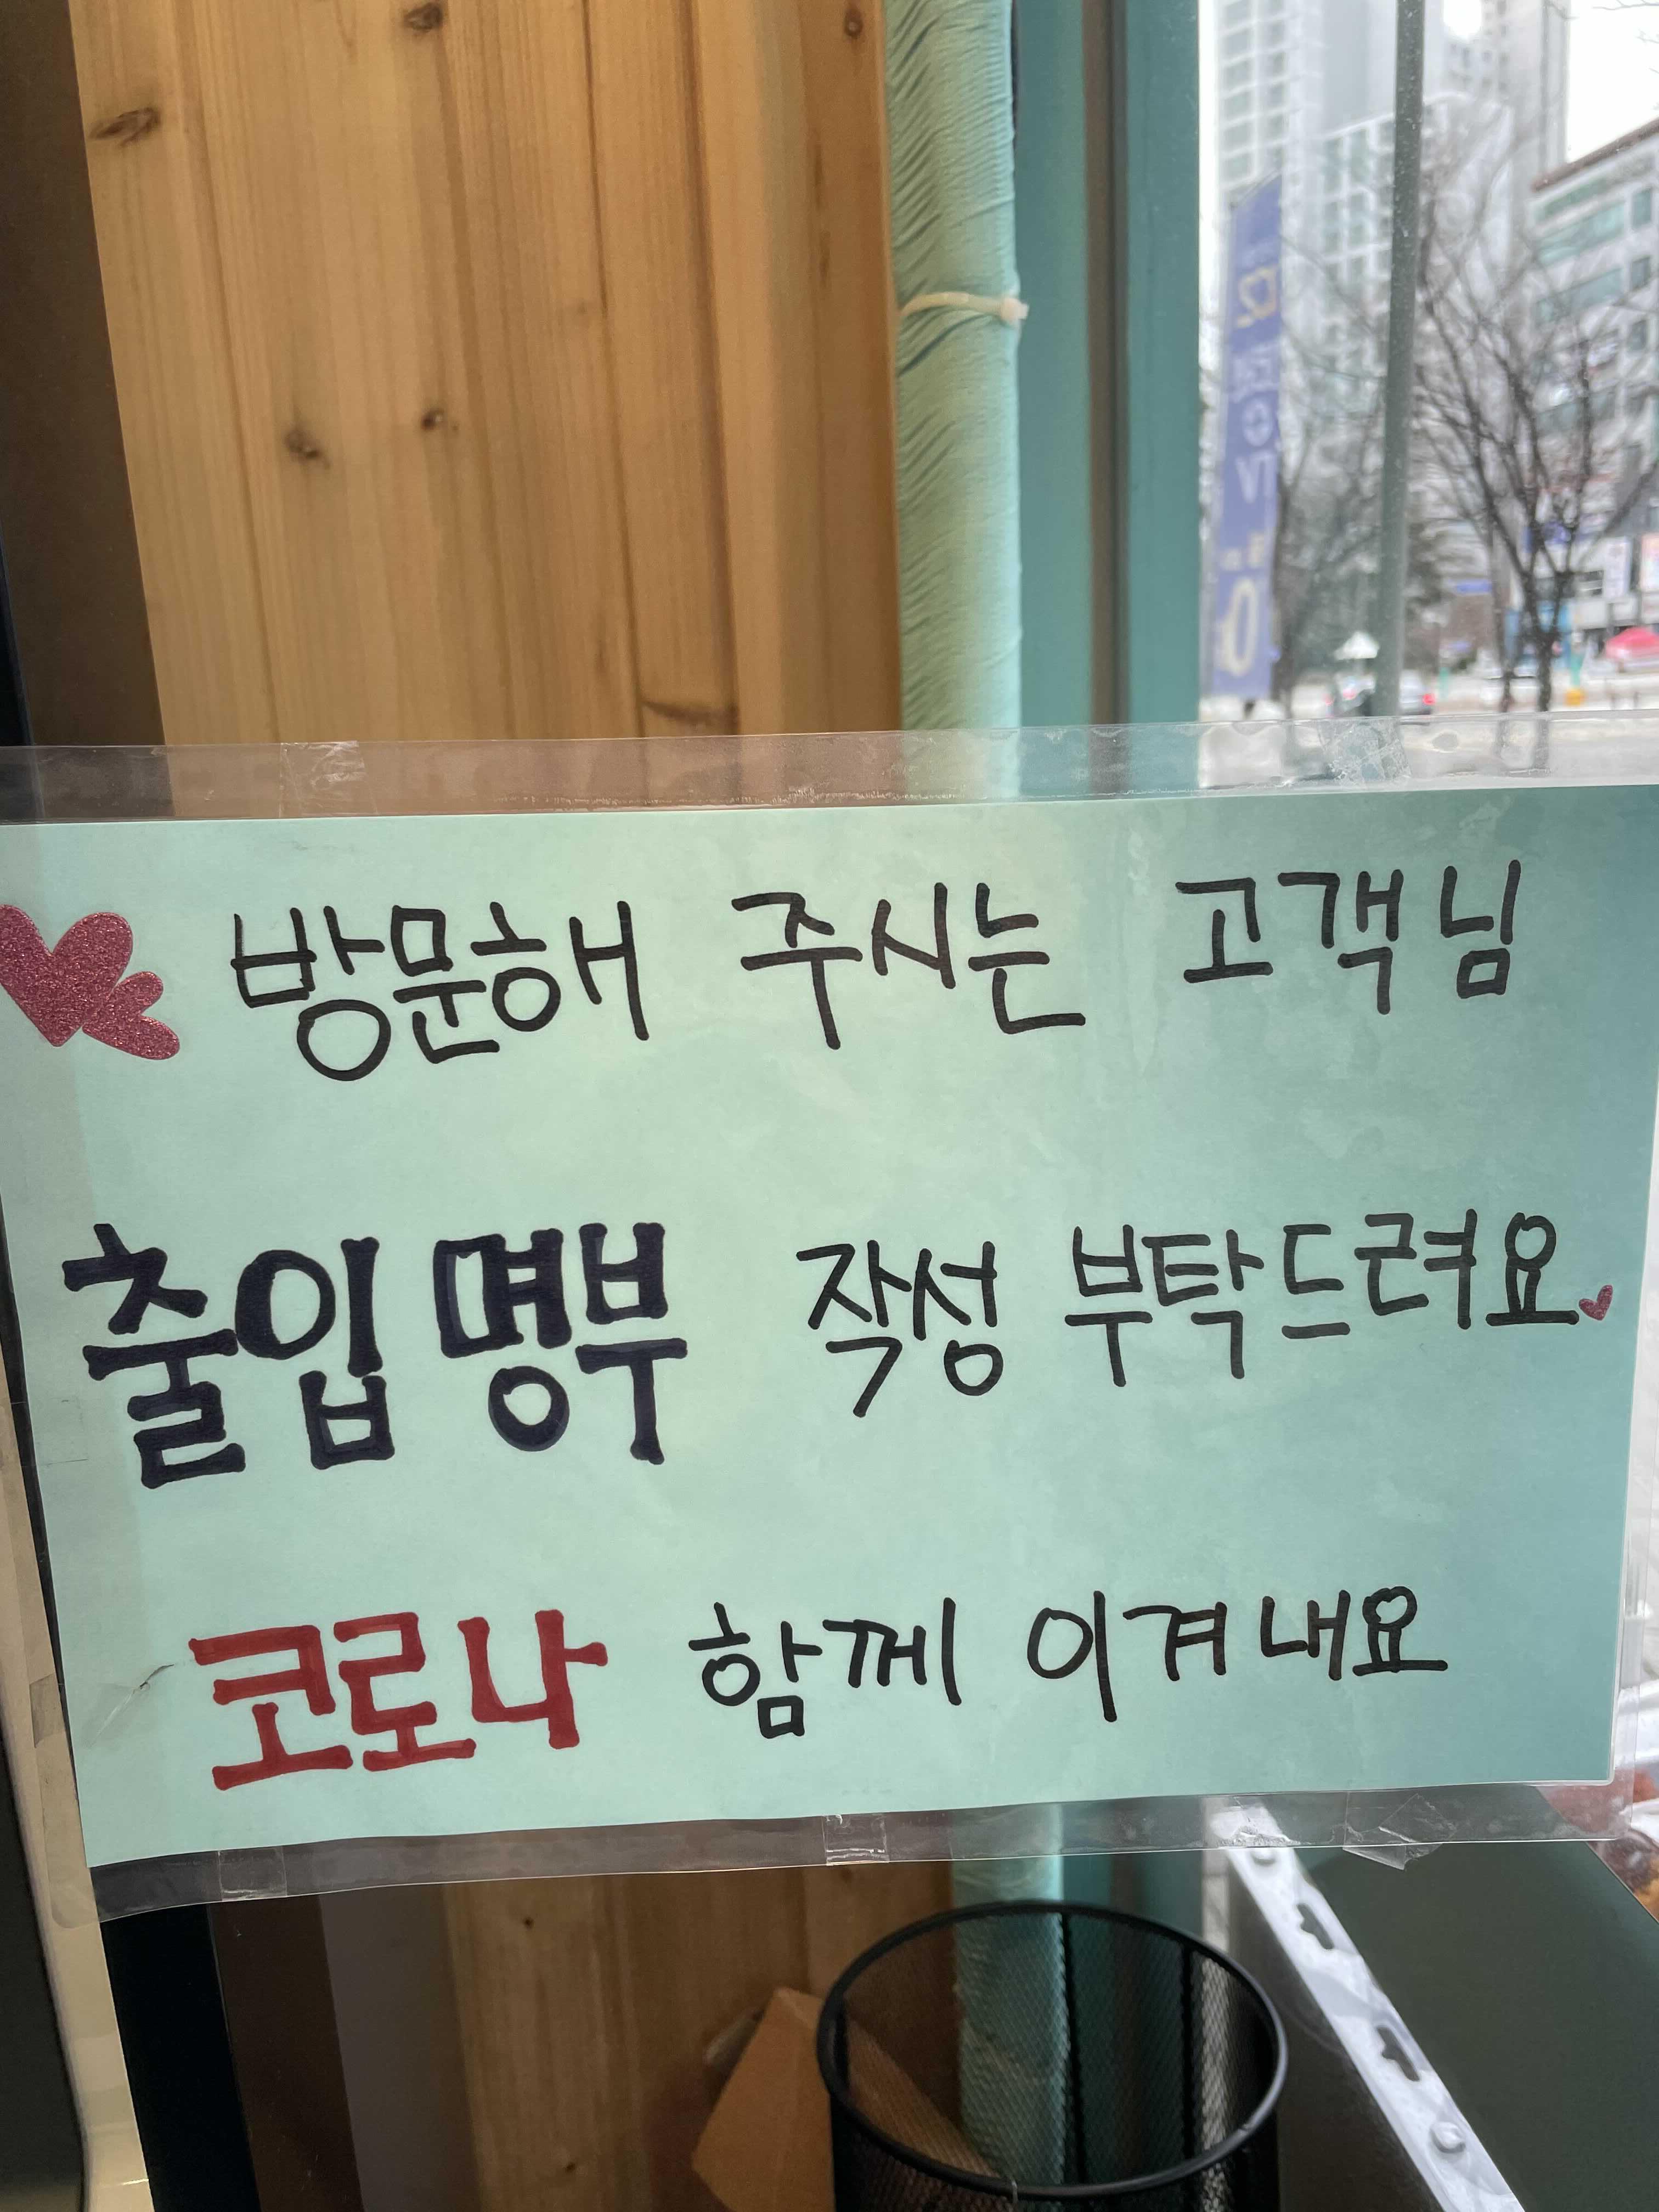 방문해 주시는 고객님
출입명부 작성 부탁드려요
코로나 함께 이겨내요